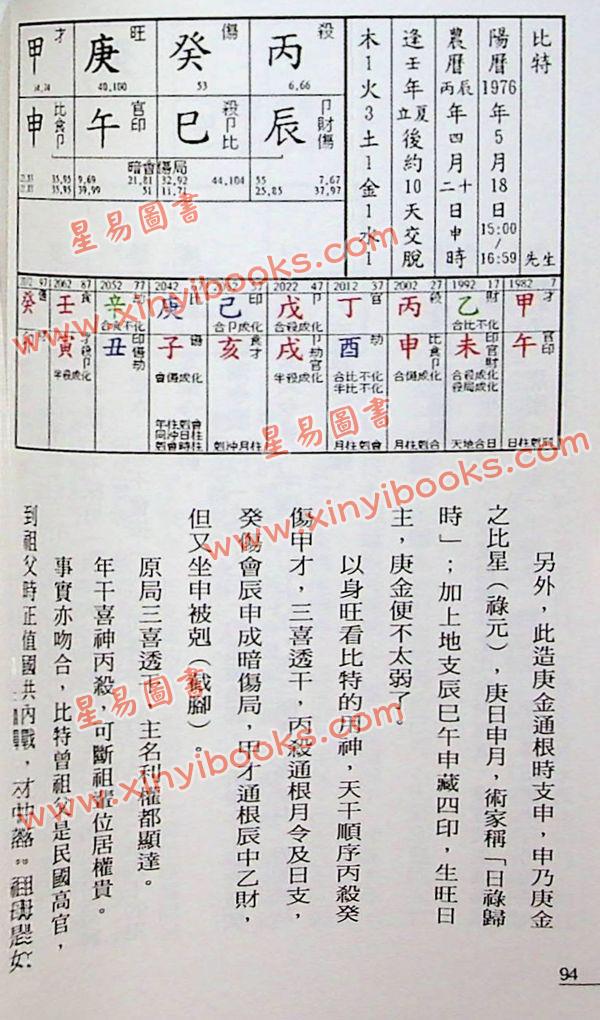 比特 先生
陽曆1976年5月18日15:00/16:59
農曆丙辰年四月二十日申時
逢壬年立夏後約10天交脫
木1火3土1金1水1
殺 傷 旺 才
丙 癸 庚 甲
6,66 53 40,100
辰 巳 午 申
卩財傷 殺卩比 官印 比食卩
暗會傷局
7,67 55 44,104 32,92 21,81 9,69 35,95
37,97 25,85 11,71 51 39,99 35,95
1982 7 才 甲午 官印
1992 17 財 乙未 印官財
合比不化
合殺成化
殺局成化
天地合日
2002 27 殺 丙申 比食卩
合傷成化
月柱剋合
2012 37 官 丁酉 劫
合比不化
半比不化
月柱剋會
2022 47 卩 戊戌 卩劫官
合殺成化
半殺成化
印 己亥 食才
合卩成化
月柱沖剋
2042 比 庚子 傷
會傷成化
年柱剋會
日柱沖
時柱會剋
2052 77 劫 辛丑 印傷劫
合殺不化
2062 87 食 壬寅
半殺成化
97 癸
另外，此造庚金通根時支申，申乃庚金
之比星（祿元），庚日申月，術家稱「日祿歸
時」；加上地支辰巳午申藏四印，生旺日
主，庚金便不太弱了。
以身旺看比特的用神，天干順序丙殺癸
傷甲才，三喜透干，丙殺通根月令及日支，
癸傷會辰申成暗傷局，甲才通根辰中乙財，
但又坐申被剋（截腳）。
原局三喜透干，主名利權都顯達。
年干喜神丙殺，可斷祖輩位居權貴。
事實亦吻合，比特曾祖父是民國高官，
到祖父時正值國共內戰，
94
星易圖書
www.xinyibooks.com
星易圖書
www.xinyibooks.com
星易圖書
www.xinyibooks.com